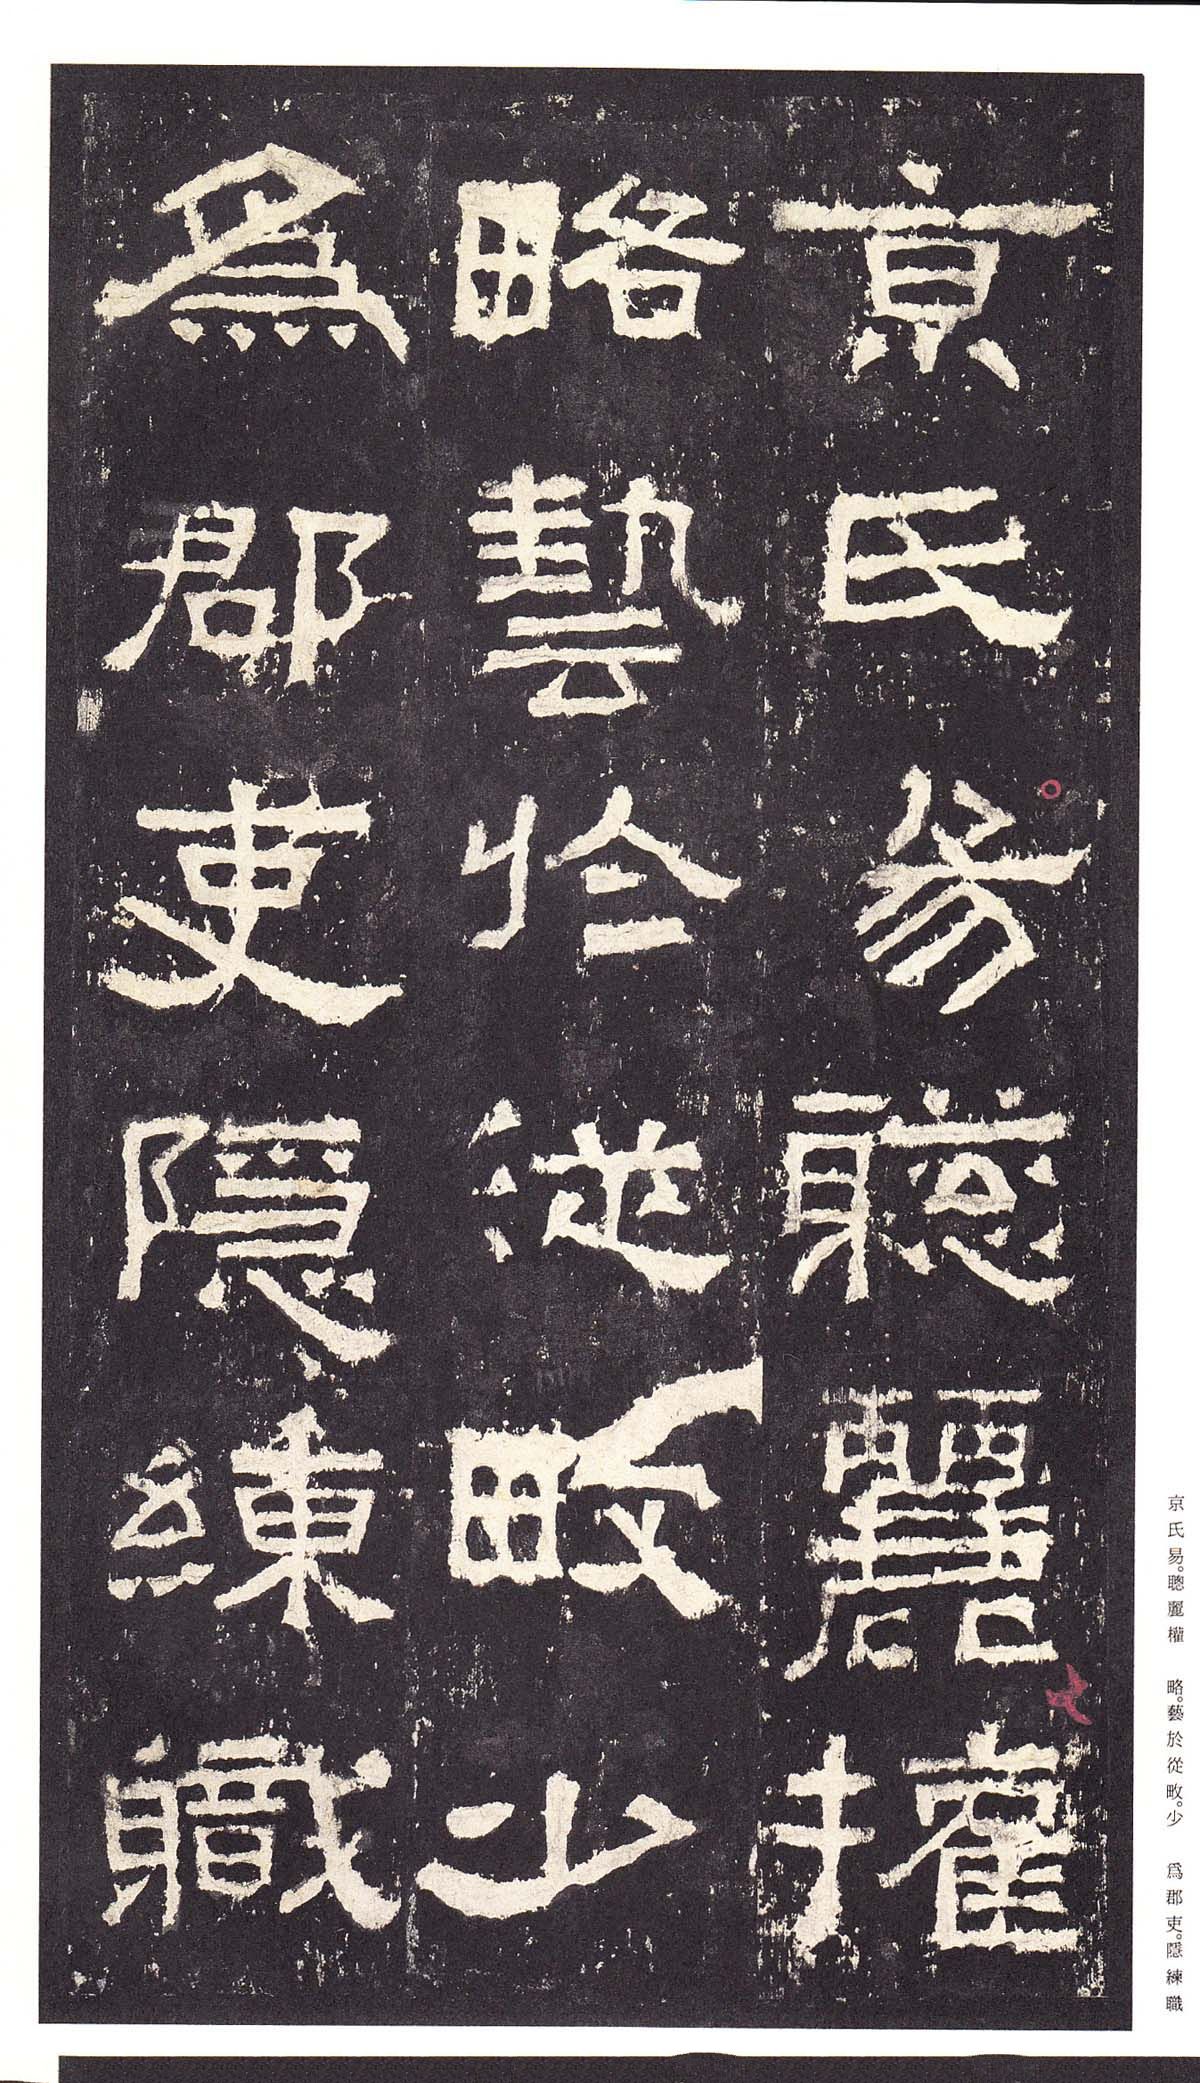 京氏易聰麗權
略藝於從畋少
爲郡吏隱練職
京氏易。聰麗權 略。藝於從畋。少 爲郡吏。隱練職